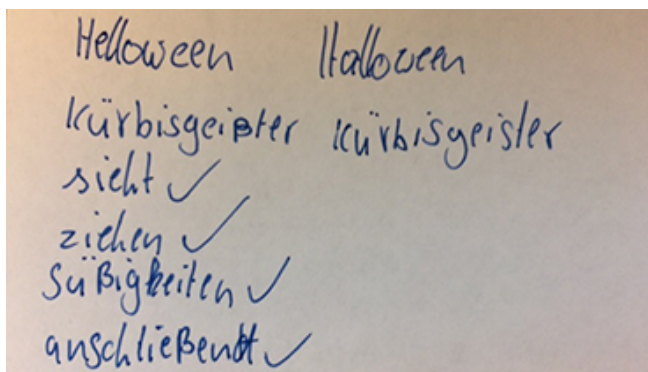 Helloween Halloween
Kürbisgeißter Kürbisgeister
sieht ✓
ziehen ✓
Süßigkeiten ✓
anschließendt ✓